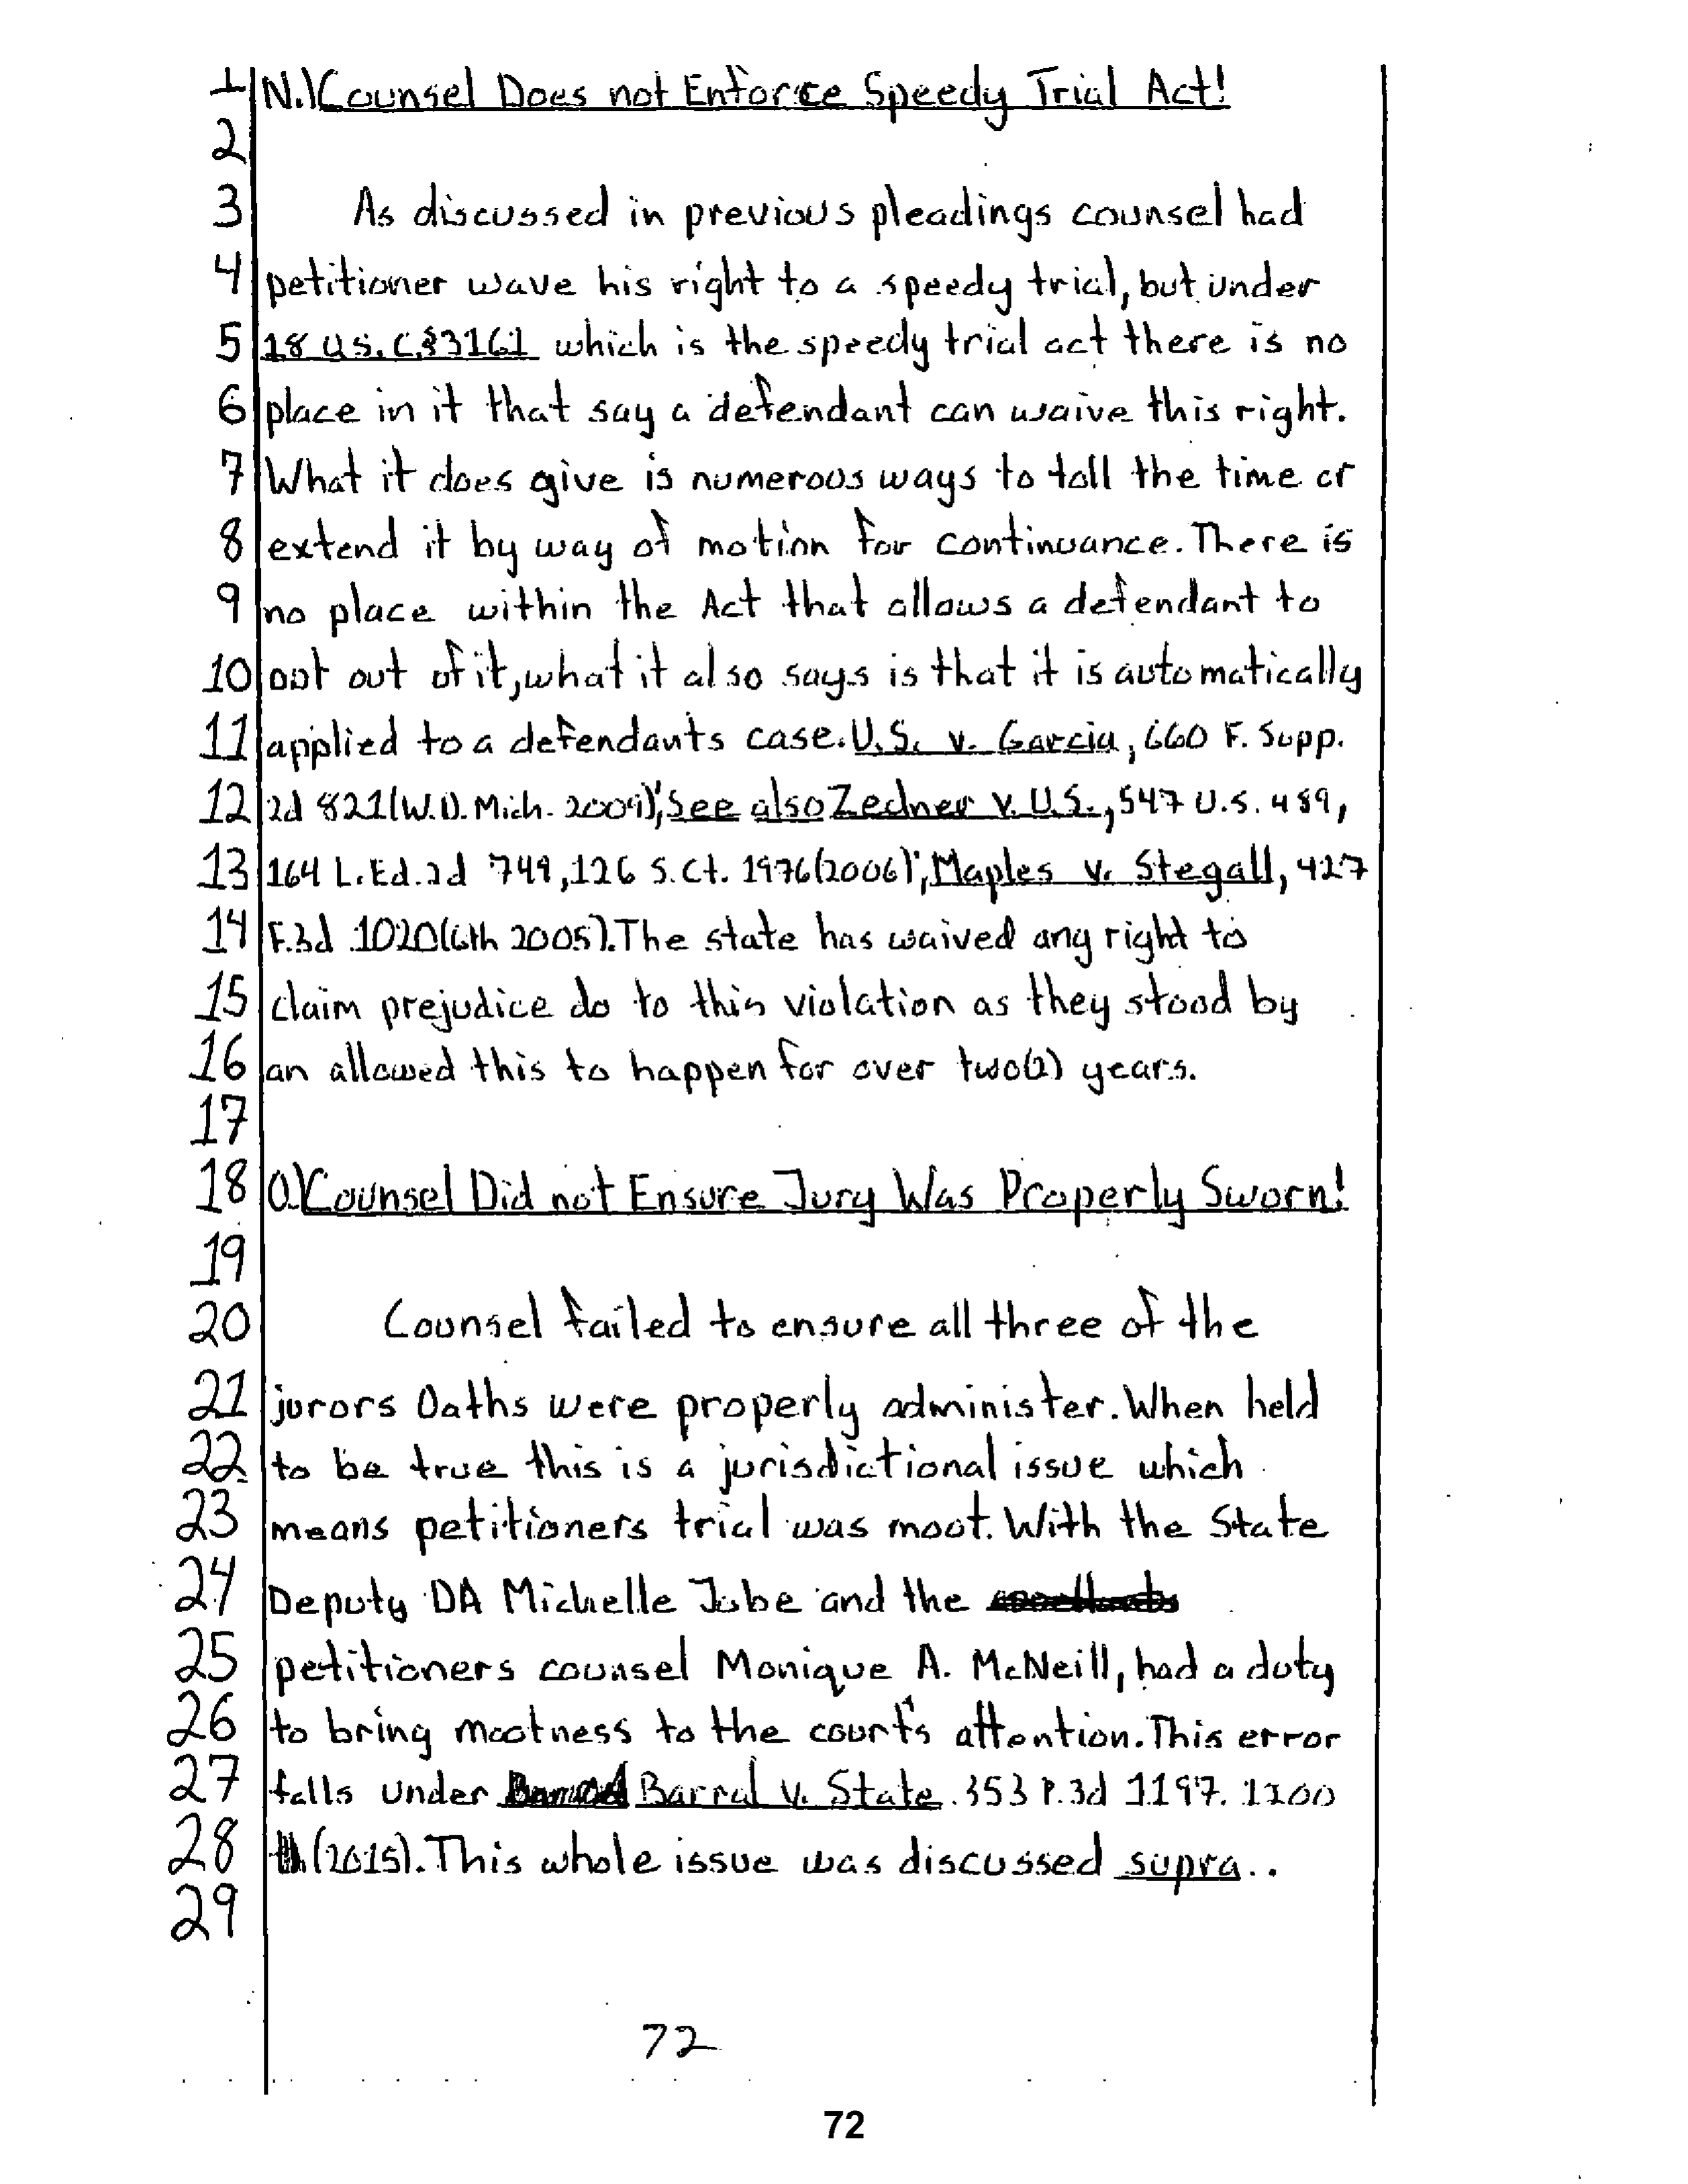 1 N.) Counsel Does not Enforce Speedy Trial Act!
2
3 As discussed in previous pleadings counsel had
4 petitioner wave his right to a speedy trial, but under
5 18 U.S.C.§3161 which is the speedy trial act there is no
6 place in it that say a defendant can waive this right.
7 What it does give is numerous ways to toll the time or
8 extend it by way of motion for continuance. There is
9 no place within the Act that allows a defendant to
10 opt out of it, what it also says is that it is automatically
11 applied to a defendants case. U.S. v. Garcia, 660 F. Supp.
12 2d 821 (W.D. Mich. 2009); See also Zedner v. U.S., 547 U.S. 489,
13 164 L.Ed.2d 749, 126 S.Ct. 1976 (2006); Maples v. Stegall, 427
14 F.3d 1020 (6th 2005). The state has waived any right to
15 claim prejudice do to this violation as they stood by
16 an allowed this to happen for over two(2) years.
17
18 O.) Counsel Did not Ensure Jury Was Properly Sworn!
19
20 Counsel failed to ensure all three of the
21 jurors Oaths were properly administer. When held
22 to be true this is a jurisdictional issue which
23 means petitioners trial was moot. With the State
24 Deputy DA Michelle Jobe and the
25 petitioners counsel Monique A. McNeill, had a duty
26 to bring mootness to the court's attention. This error
27 falls under Barral v. State. 353 P.3d 1197. 1200
28 (2015). This whole issue was discussed supra..
29
72
72